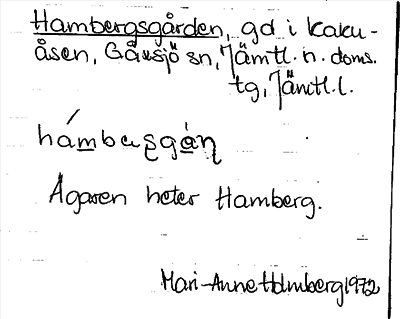 Hambergsgården, gd i Kaku-
åsen, Gåxsjö sn, Jämtl. n. doms.
tg, Jämtl. l.
Ägaren heter Hamberg.
Mari-Anne Holmberg 1972